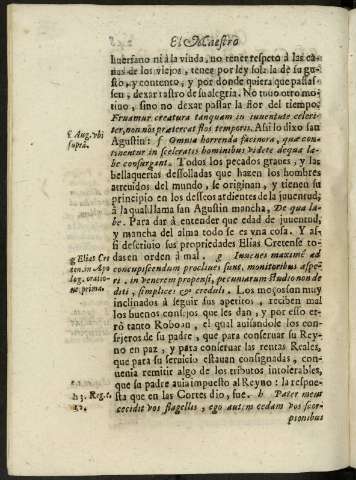 El Maestro
huerfano ni à la viuda, no tener respeto à las ca-
nas de los viejos, tener por ley sola la de su gus-
to, y contento, y por donde quiera que passas-
sen, dexar rastro de su alegria. No tuuo otro mo-
tiuo, sino no dexar passar la flor del tiempo.
Fruamur creatura tanquam in iuuentute celeri-
ter, non nos prætereat flos temporis. Assi lo dixo san
f. Aug. vbi
supra.
Agustin: f Omnia horrenda facinora, quæ con-
tinentur in sceleratis hominibus videte de qua la-
be consurgant. Todos los pecados graues, y las
bellaquerias dessolladas que hazen los hombres
atreuidos del mundo, se originan, y tienen su
principio en los desseos ardientes de la juuentud;
à la qual llama san Agustin mancha, De qua la-
be. Para dár à entender que edad de juuentud,
y mancha del alma todo se es vna cosa. Y as-
si descriuio sus propriedades Elias Cretense to-
g Elias Cre
ten. in Apo
log. oratio-
ne. prima.
das en orden à mal. g Iuuenes maximè ad
concupiscendum procliues sunt, monitoribus aspe-
ri, in venerem propensi, pecuniarum studio non de
diti, simplices & creduli. Los moços son muy
inclinados à seguir sus apetitos, reciben mal
los buenos consejos que les dan, y por esso er-
rò tanto Roboan, el qual auisandole los con-
sejeros de su padre, que para conseruar su Rey-
no en paz, y para conseruar las rentas Reales,
que para su seruicio estauan consignadas, con-
uenia remitir algo de los tributos intolerables,
que su padre auia impuesto al Reyno: la respues-
h 3. Reg. c.
12.
ta que en las Cortes dio, fue. h Pater meus
cecidit vos flagellis, ego autem cædam vos scor-
pionibus